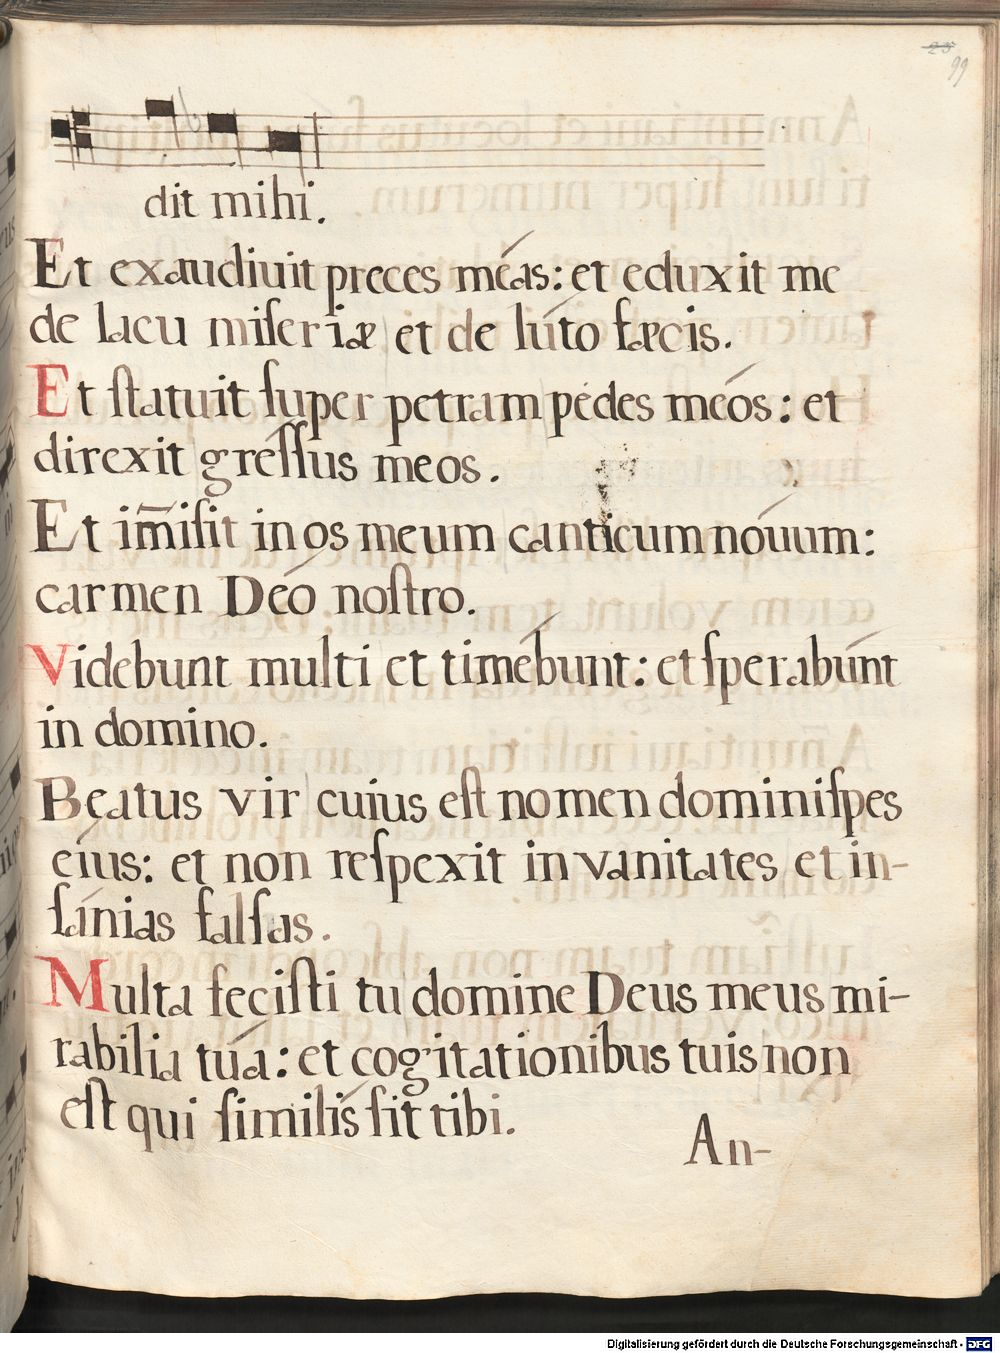 25
99
dit mihi.
Et exaudiuit preces méas: et eduxit me
de lacu miseriæ et de lúto fæcis.
Et statuit super petram pédes méos: et
direxit gréssus meos.
Et im̃isit in os meum canticum nóuum:
carmen Déo nostro.
Videbunt multi et timébunt: et sperabúnt
in domino.
Beatus vir cuius est nomen domini spes
éius: et non respexit in vanitates et in-
sánias falsas.
Multa fecisti tu domine Deus meus mi-
rabilia túa: et cogitationibus tuis non
est qui similis sit tibi.
An-
Digitalisierung gefördert durch die Deutsche Forschungsgemeinschaft - DFG